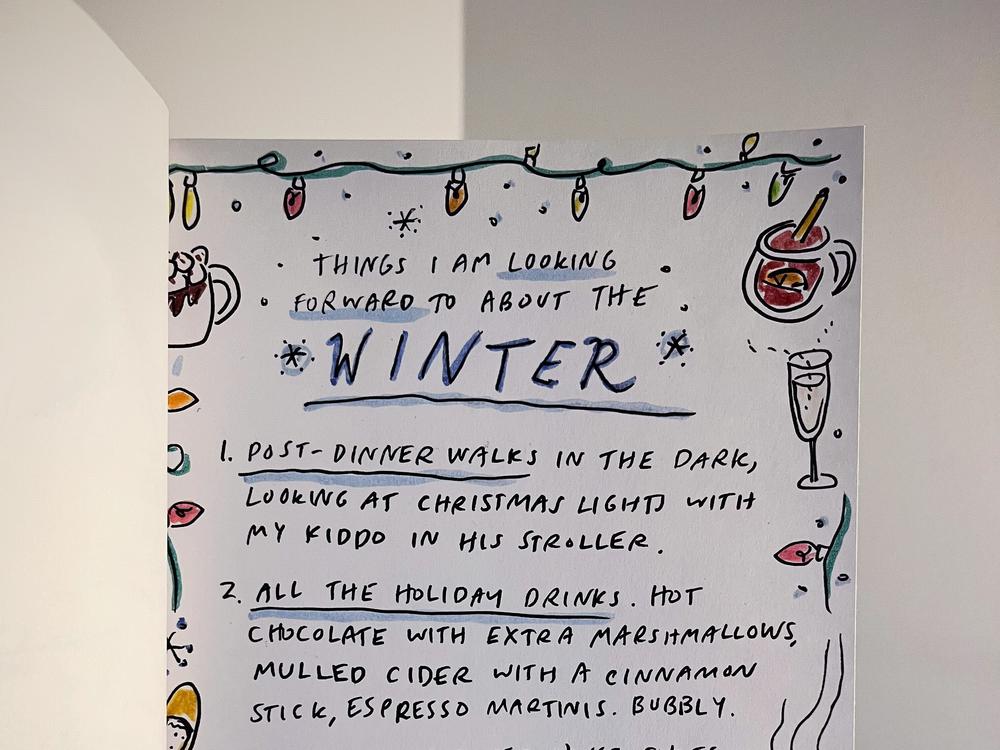 THINGS I AM LOOKING
FORWARD TO ABOUT THE
WINTER
1. POST-DINNER WALKS IN THE DARK,
LOOKING AT CHRISTMAS LIGHTS WITH
MY KIDDO IN HIS STROLLER.
2. ALL THE HOLIDAY DRINKS. HOT
CHOCOLATE WITH EXTRA MARSHMALLOWS,
MULLED CIDER WITH A CINNAMON
STICK, ESPRESSO MARTINIS. BUBBLY.